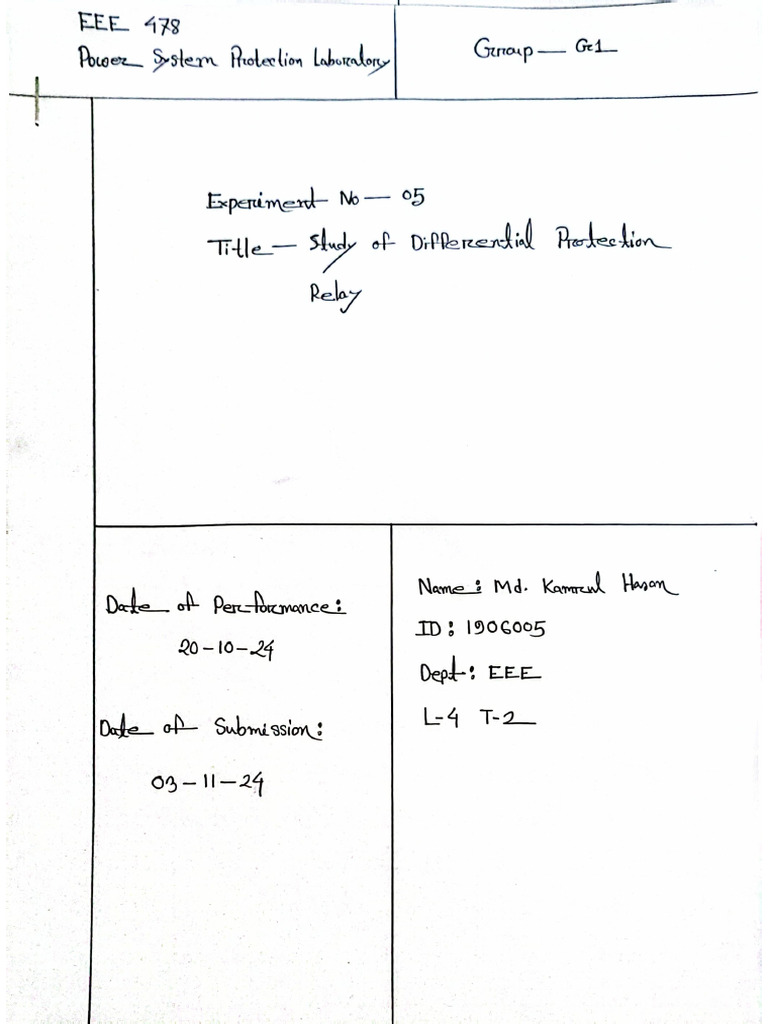 EEE 478
Power System Protection Laboratory
Group — G1
Experiment No — 05
Title — Study of Differential Protection
Relay
Date of Performance:
20-10-24
Date of Submission:
03-11-24
Name: Md. Kamrul Hasan
ID: 1906005
Dept: EEE
L-4 T-2